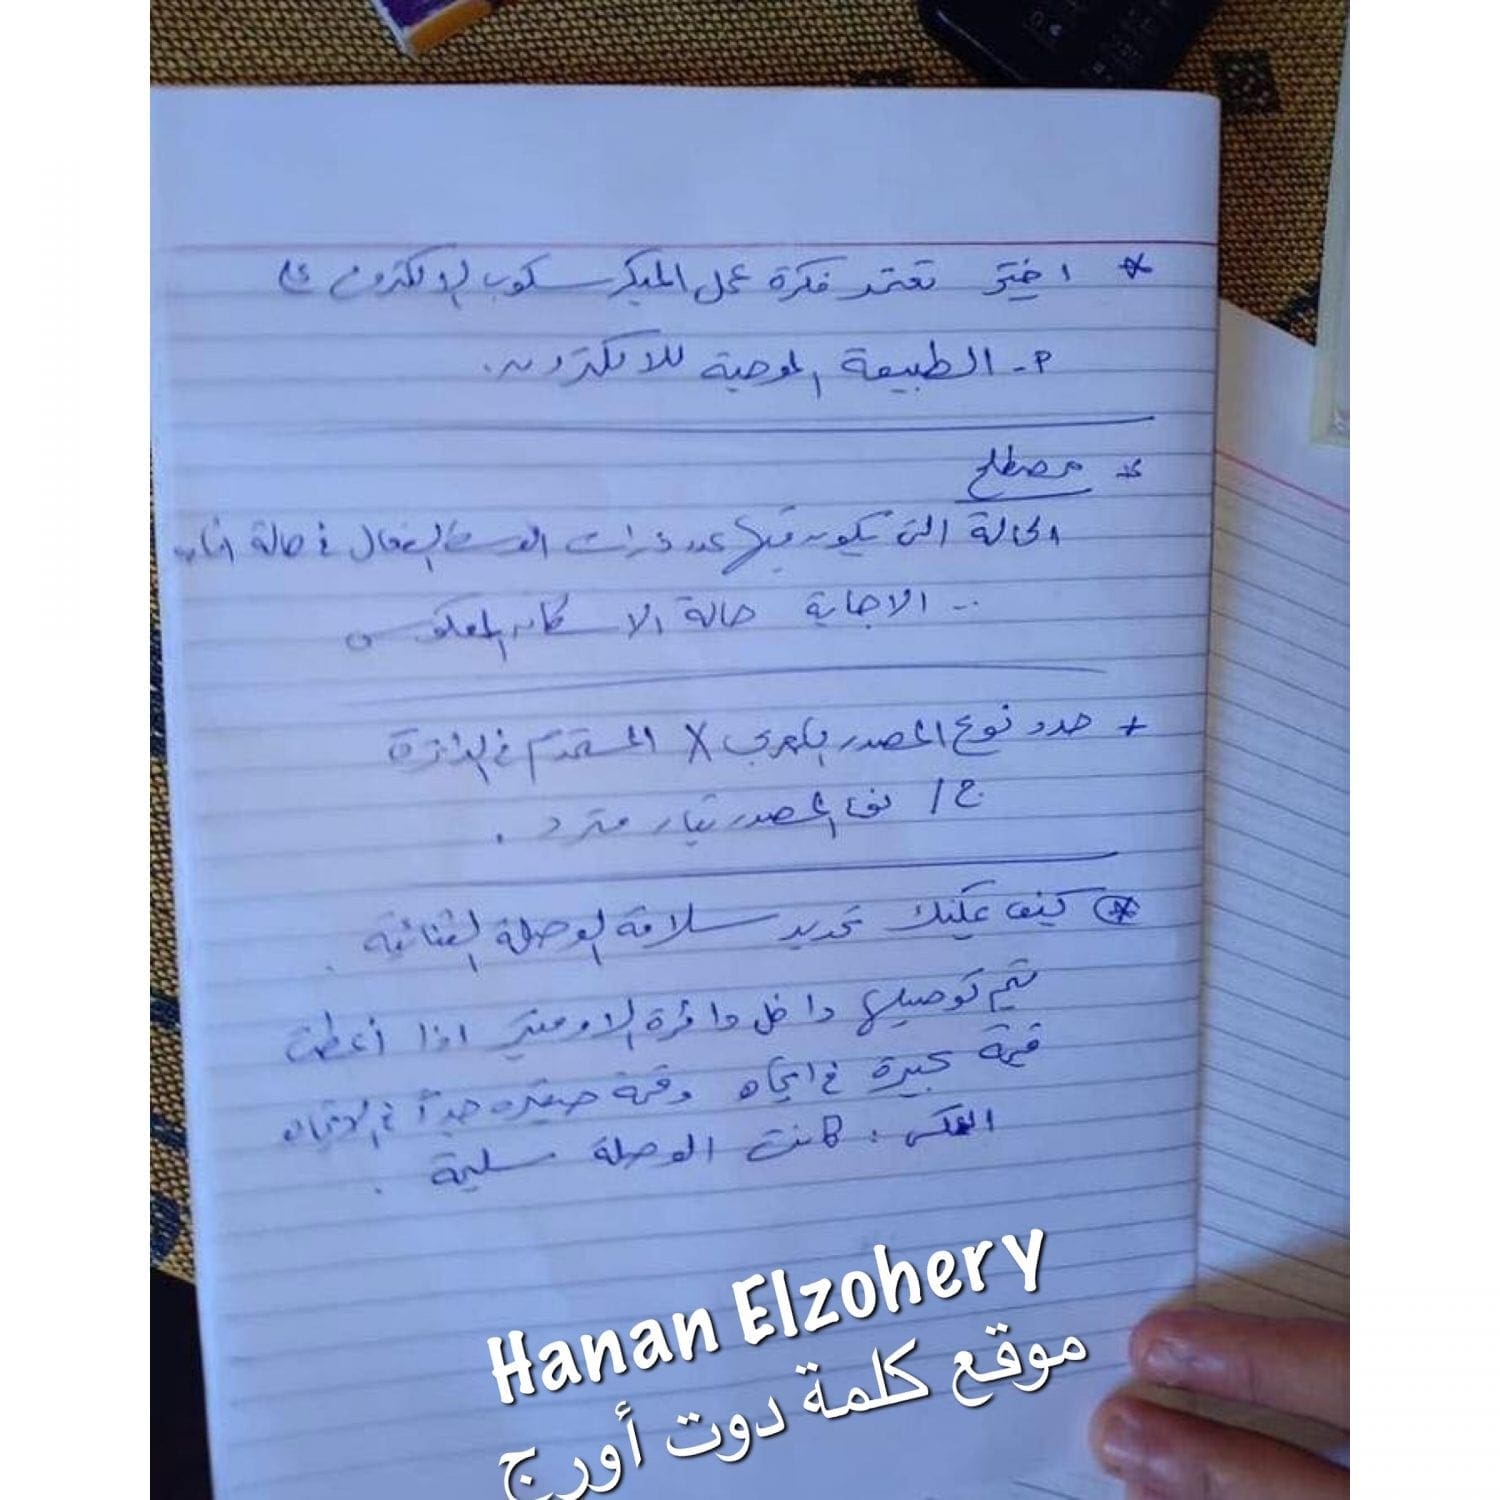 * اختر تعتمد فكرة عمل الميكرسكوب الالكترونى على
P- الطبيعة الموجية للالكترون.
* مصطلح
الحالة التى يكون فيها عدد ذرات الوسط الفعال فى حالة اثاره
-- الاجابة حالة الاسكان المعكوس
+ حدد نوع المصدر الكهربي X المستخدم فى الدائرة
ج/ نوع المصدر تيار متردد.
* كيف يمكنك تحديد سلامة الوصلة الثنائية.
يتم توصيلها داخل دائرة الاوميتر اذا أعطت
قيمة كبيرة فى اتجاه وقيمة صغيره جداً فى الاتجاه
العكس. كانت الوصلة سليمة.
Hanan Elzohery
موقع كلمة دوت أورج